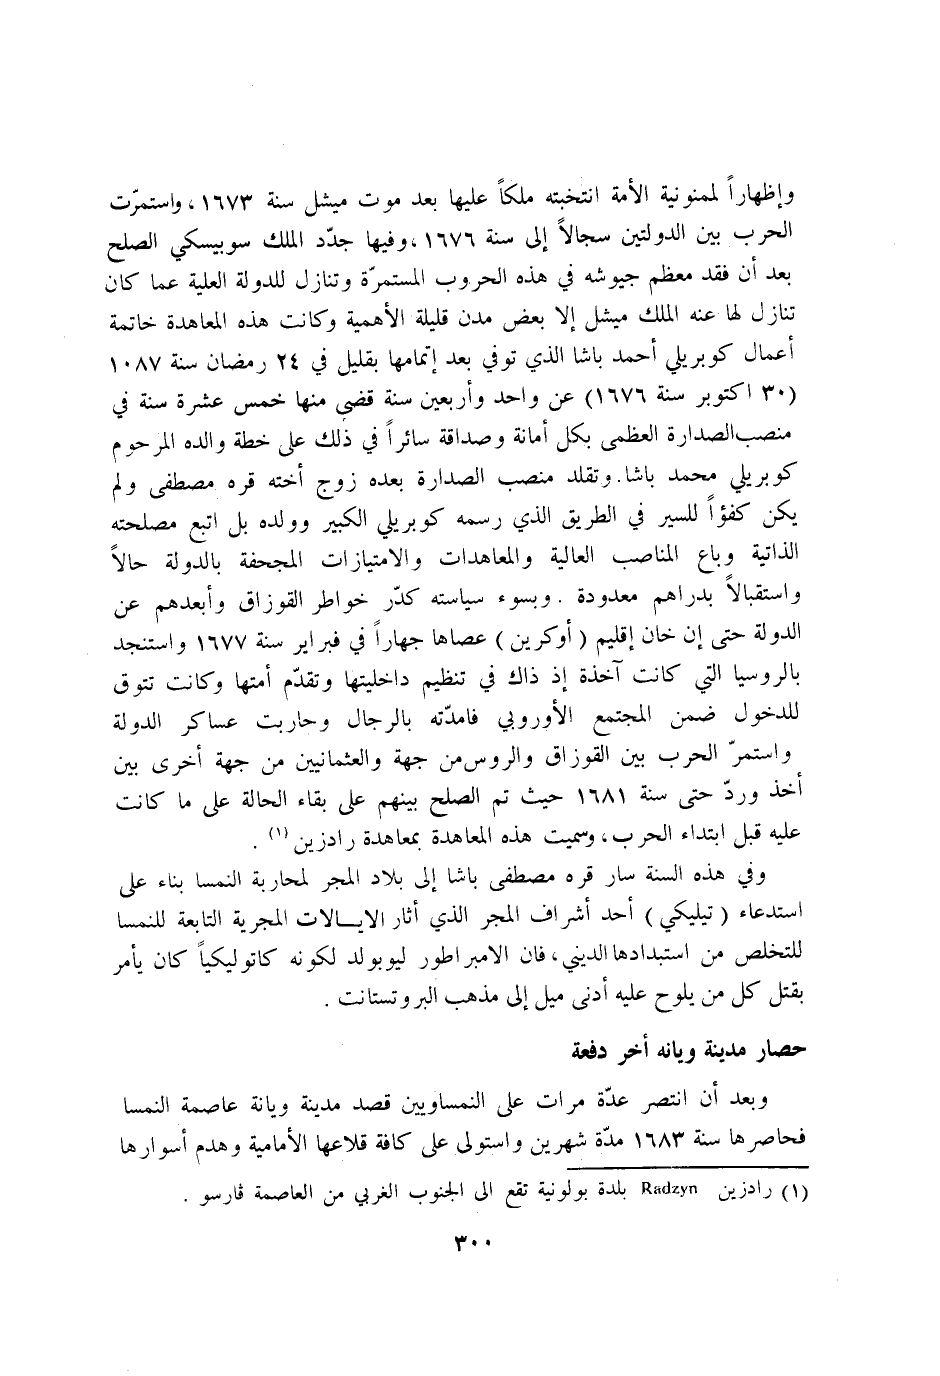 وإظهاراً لممنونية الأمة انتخبته ملكاً عليها بعد موت ميشل سنة ١٦٧٣، واستمرّت
الحرب بين الدولتين سجالاً إلى سنة ١٦٧٦، وفيها جدّد الملك سوبيسكي الصلح
بعد أن فقد معظم جيوشه في هذه الحروب المستمرّة وتنازل للدولة العلية عما كان
تنازل لها عنه الملك ميشل إلا بعض مدن قليلة الأهمية وكانت هذه المعاهدة خاتمة
أعمال كوبريلي أحمد باشا الذي توفي بعد إتمامها بقليل في ٢٤ رمضان سنة ١٠٨٧
(٣٠ اكتوبر سنة ١٦٧٦) عن واحد وأربعين سنة قضى منها خمس عشرة سنة في
منصب الصدارة العظمى بكل أمانة وصداقة سائراً في ذلك على خطة والده المرحوم
كوبريلي محمد باشا. وتقلد منصب الصدارة بعده زوج أخته قره مصطفى ولم
يكن كفؤاً للسير في الطريق الذي رسمه كوبريلي الكبير وولده بل اتبع مصلحته
الذاتية وباع المناصب العالية والمعاهدات والامتيازات المجحفة بالدولة حالاً
واستقبالاً بدراهم معدودة . وبسوء سياسته كدّر خواطر القوزاق وأبعدهم عن
الدولة حتى إن خان إقليم (أوكرين) عصاها جهاراً في فبراير سنة ١٦٧٧ واستنجد
بالروسيا التي كانت آخذة إذ ذاك في تنظيم داخليتها وتقدّم أمتها وكانت تتوق
للدخول ضمن المجتمع الأوروبي فامدّته بالرجال وحاربت عساكر الدولة
واستمرّ الحرب بين القوزاق والروس من جهة والعثمانيين من جهة أخرى بين
أخذ وردّ حتى سنة ١٦٨١ حيث تم الصلح بينهم على بقاء الحالة على ما كانت
عليه قبل ابتداء الحرب، وسميت هذه المعاهدة بمعاهدة رادزين (١) .
وفي هذه السنة سار قره مصطفى باشا إلى بلاد المجر لمحاربة النمسا بناء على
استدعاء (تيليكي) أحد أشراف المجر الذي أثار الايــالات المجرية التابعة للنمسا
للتخلص من استبدادها الديني، فان الامبراطور ليوبولد لكونه كاتوليكياً كان يأمر
بقتل كل من يلوح عليه أدنى ميل إلى مذهب البروتستانت .
حصار مدينة ويانه أخر دفعة
وبعد أن انتصر عدّة مرات على النمساويين قصد مدينة ويانة عاصمة النمسا
فحاصرها سنة ١٦٨٣ مدّة شهرين واستولى على كافة قلاعها الأمامية وهدم أسوارها
(١) رادزين Radzyn بلدة بولونية تقع الى الجنوب الغربي من العاصمة ڤارسو .
٣٠٠